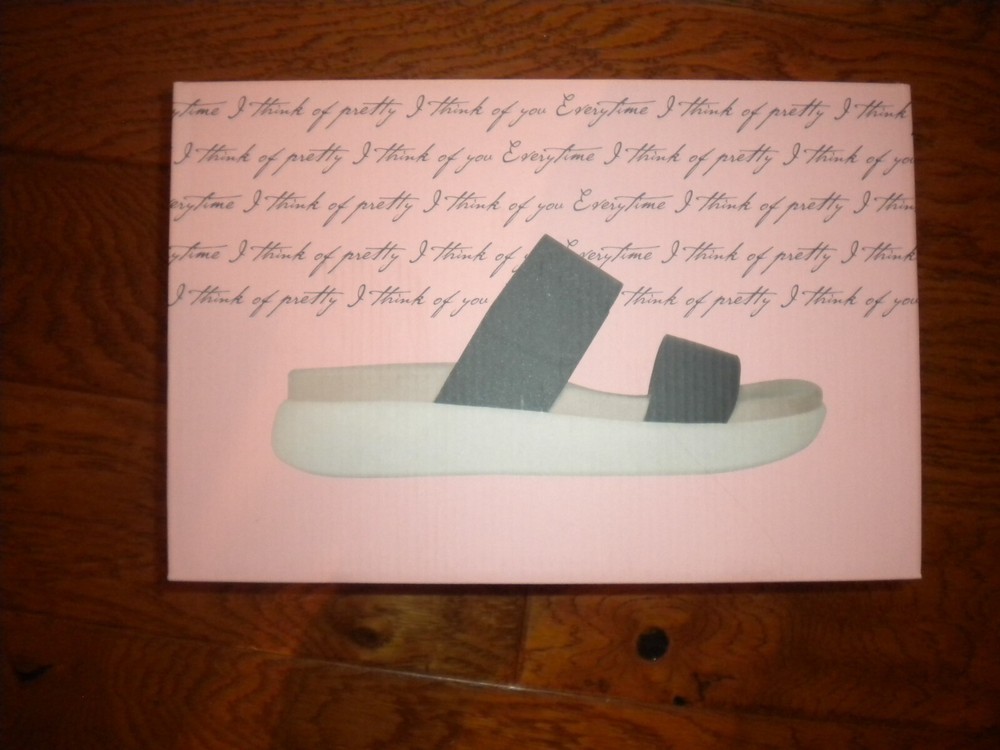 ytime I think of pretty I think of you Everytime I think of pretty I think
I think of pretty I think of you Everytime I think of pretty I think of you
erytime I think of pretty I think of you Everytime I think of pretty I thin
ytime I think of pretty I think of verytime I think of pretty I think
I think of pretty I think of you think of pretty I think of you